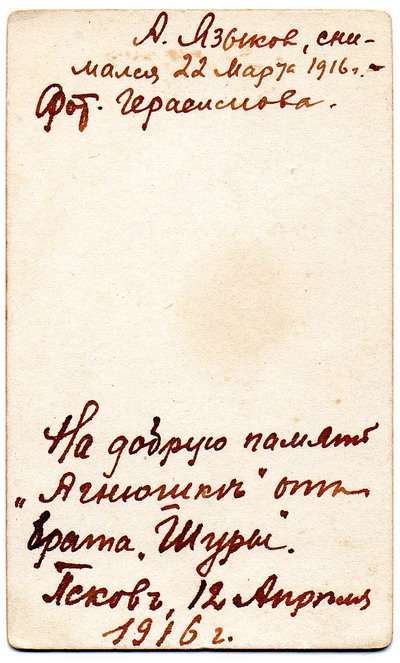 А. Языков, сни-
мался 22 Марта 1916 г. -
Фот. Герасимова.
На добрую память
„Агнюшкѣ" отъ
брата „Шуры".
Псковъ, 12 Апрѣля
1916 г.